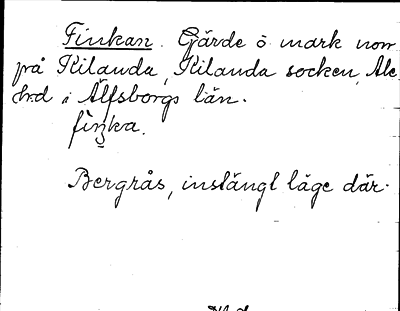 Finkan. Gärde ö mark norr
på Kilanda, Kilanda socken, Ale
hrd i Älfsborgs län.
fiŋka.
Bergrås, instängt läge där.